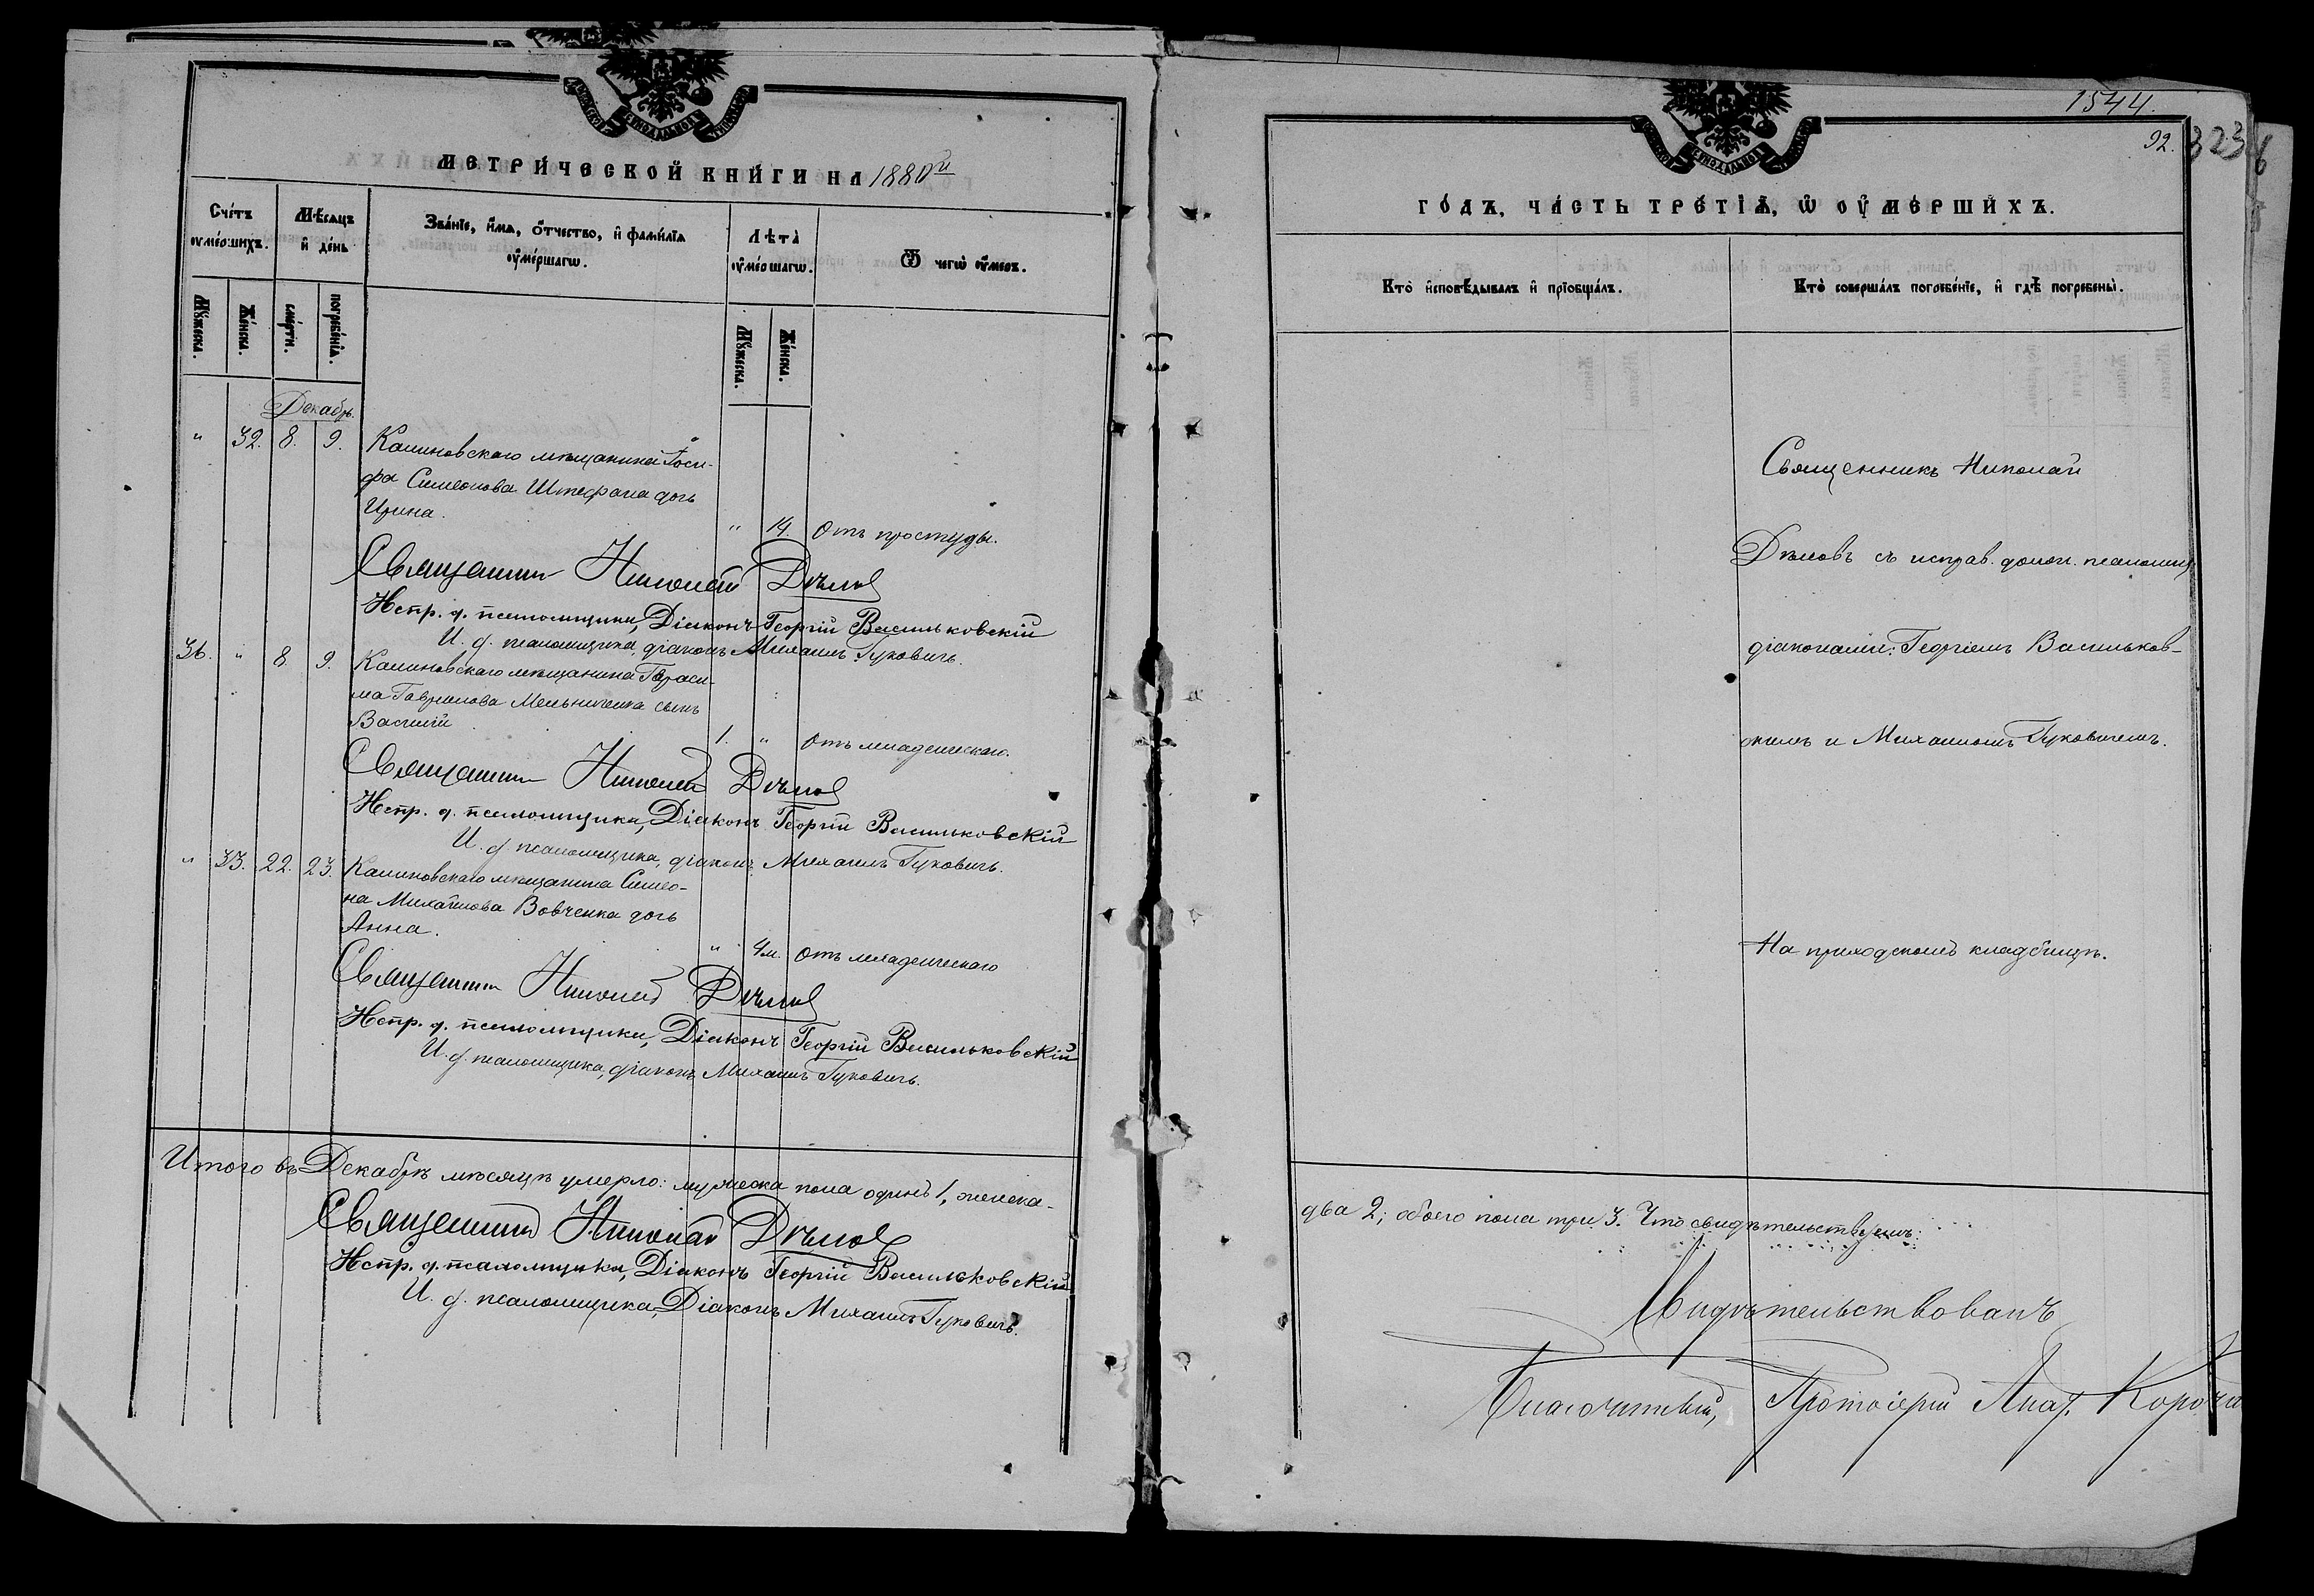 МЕТРИ́ЧЕСКОЙ КНИ́ГИ НА 1880й
Сче́тъ оумéршихъ.
Мѣ́сяцъ и҆ де́нь
Зва́нїе, и҆́мѧ, ѻ҆́тчество, и҆ фами́лїѧ оу҆ме́ршагѡ.
Лѣта̀ оу҆ме́ршагѡ.
Ѿ чегѡ̀ оу҆́меръ.
Мꙋ́жеска.
Же́нска.
сме́рти.
погребе́нїѧ.
Мꙋ́жеска.
Же́нска.
Декабрь.
" 32. 8. 9. Калиновскаго мѣщанина Іоси-
фа Симеонова Штефана дочь
Ирина. " 14. Отъ простуды.
Священникъ Николай Дѣмов
Испр. д. псаломщика, Діаконъ Георгій Васильковскій
И. д. псаломщика, діаконъ Михаилъ Гуковичь.
36. " 8 9. Калиновскаго мѣщанина Гараси-
ма Гавриилова Мельниченка сынъ
Василій 1. " Отъ младенческаго.
Священникъ Николай Дѣмов
Испр. д. псаломщика, Діаконъ Георгій Васильковскій
И. д. псаломщика, діаконъ Михаилъ Гуковичь.
" 33. 22. 23. Калиновскаго мѣщанина Симео-
на Михайлова Вовченка дочь
Анна. " 4м. Отъ младенческаго
Священникъ Николай Дѣмов
Испр. д. псаломщика, Діаконъ Георгій Васильковскій
И. д. псаломщика, діаконъ Михаилъ Гуковичь.
Итого въ Декабрѣ мѣсяцѣ умерло: мужеска пола одинъ 1, женска-
Священникъ Николай Дѣмов
Испр. д. псаломщика, Діаконъ Георгій Васильковскій
И. д. псаломщика, Діаконъ Михаилъ Гуковичь.
1544.
92. 323
ГО́ДЪ, ЧА́СТЬ ТРЕ́ТЇѦ, Ѡ҆ ОУ҆МЕ́РШИХЪ.
Кто̀ и҆сповѣ́дывалъ и҆ прїобща́лъ.
Кто̀ соверша́лъ погребе́нїе, и҆ гдѣ̀ погребены̀.
Священникъ Николай
Дѣмовъ съ исправ. долж. псаломщ.
діаконами: Георгіемъ Васильков-
скимъ и Михаиломъ Гуковичемъ.
На приходскомъ кладбищѣ.
два 2; обоего пола три 3. Что свидѣтельствуемъ:
Свидѣтельствовалъ
Благочинный, Протоіерей